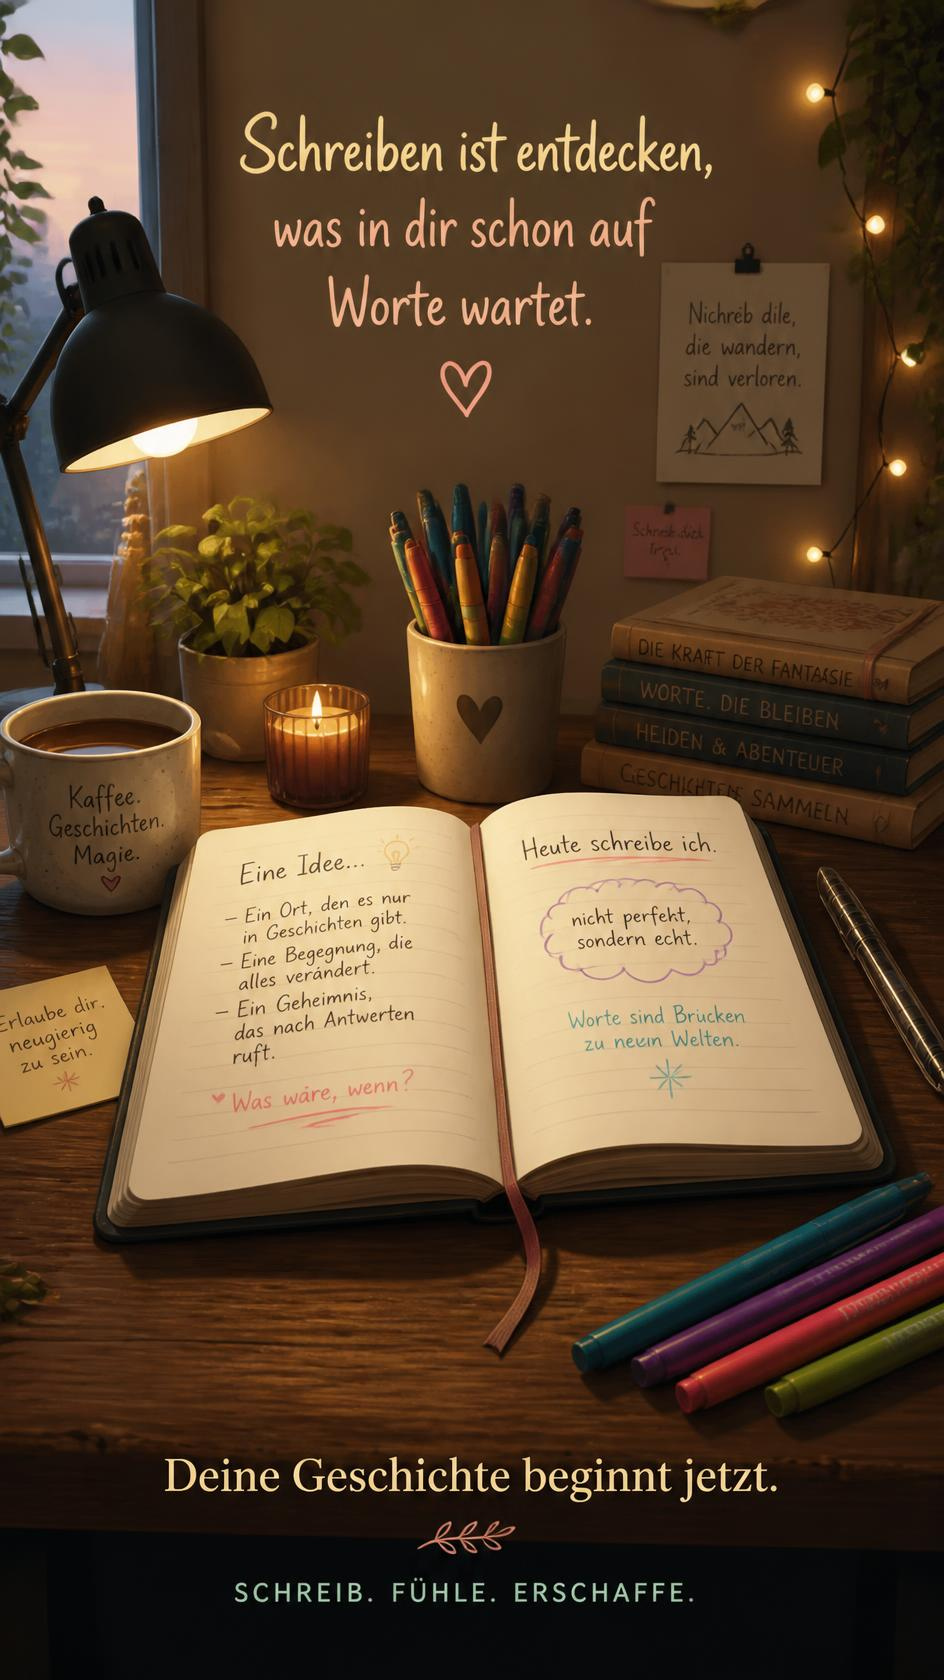 Schreiben ist entdecken,
was in dir schon auf
Worte wartet.
Nichreb dile,
die wandern,
sind verloren.
DIE KRAFT DER FANTASIE
WORTE. DIE BLEIBEN
HEIDEN & ABENTEUER
GESCHICHTEN SAMMELN
Kaffee.
Geschichten.
Magie.
Eine Idee...
– Ein Ort, den es nur
in Geschichten gibt.
– Eine Begegnung, die
alles verándert.
– Ein Geheimnis,
das nach Antworten
ruft.
Was wáre, wenn?
Heute schreibe ich.
nicht perfekt,
sondern echt.
Worte sind Brucken
zu neuen Welten.
Erlaube dir.
neugierig
zu sein.
Deine Geschichte beginnt jetzt.
SCHREIB. FÜHLE. ERSCHAFFE.